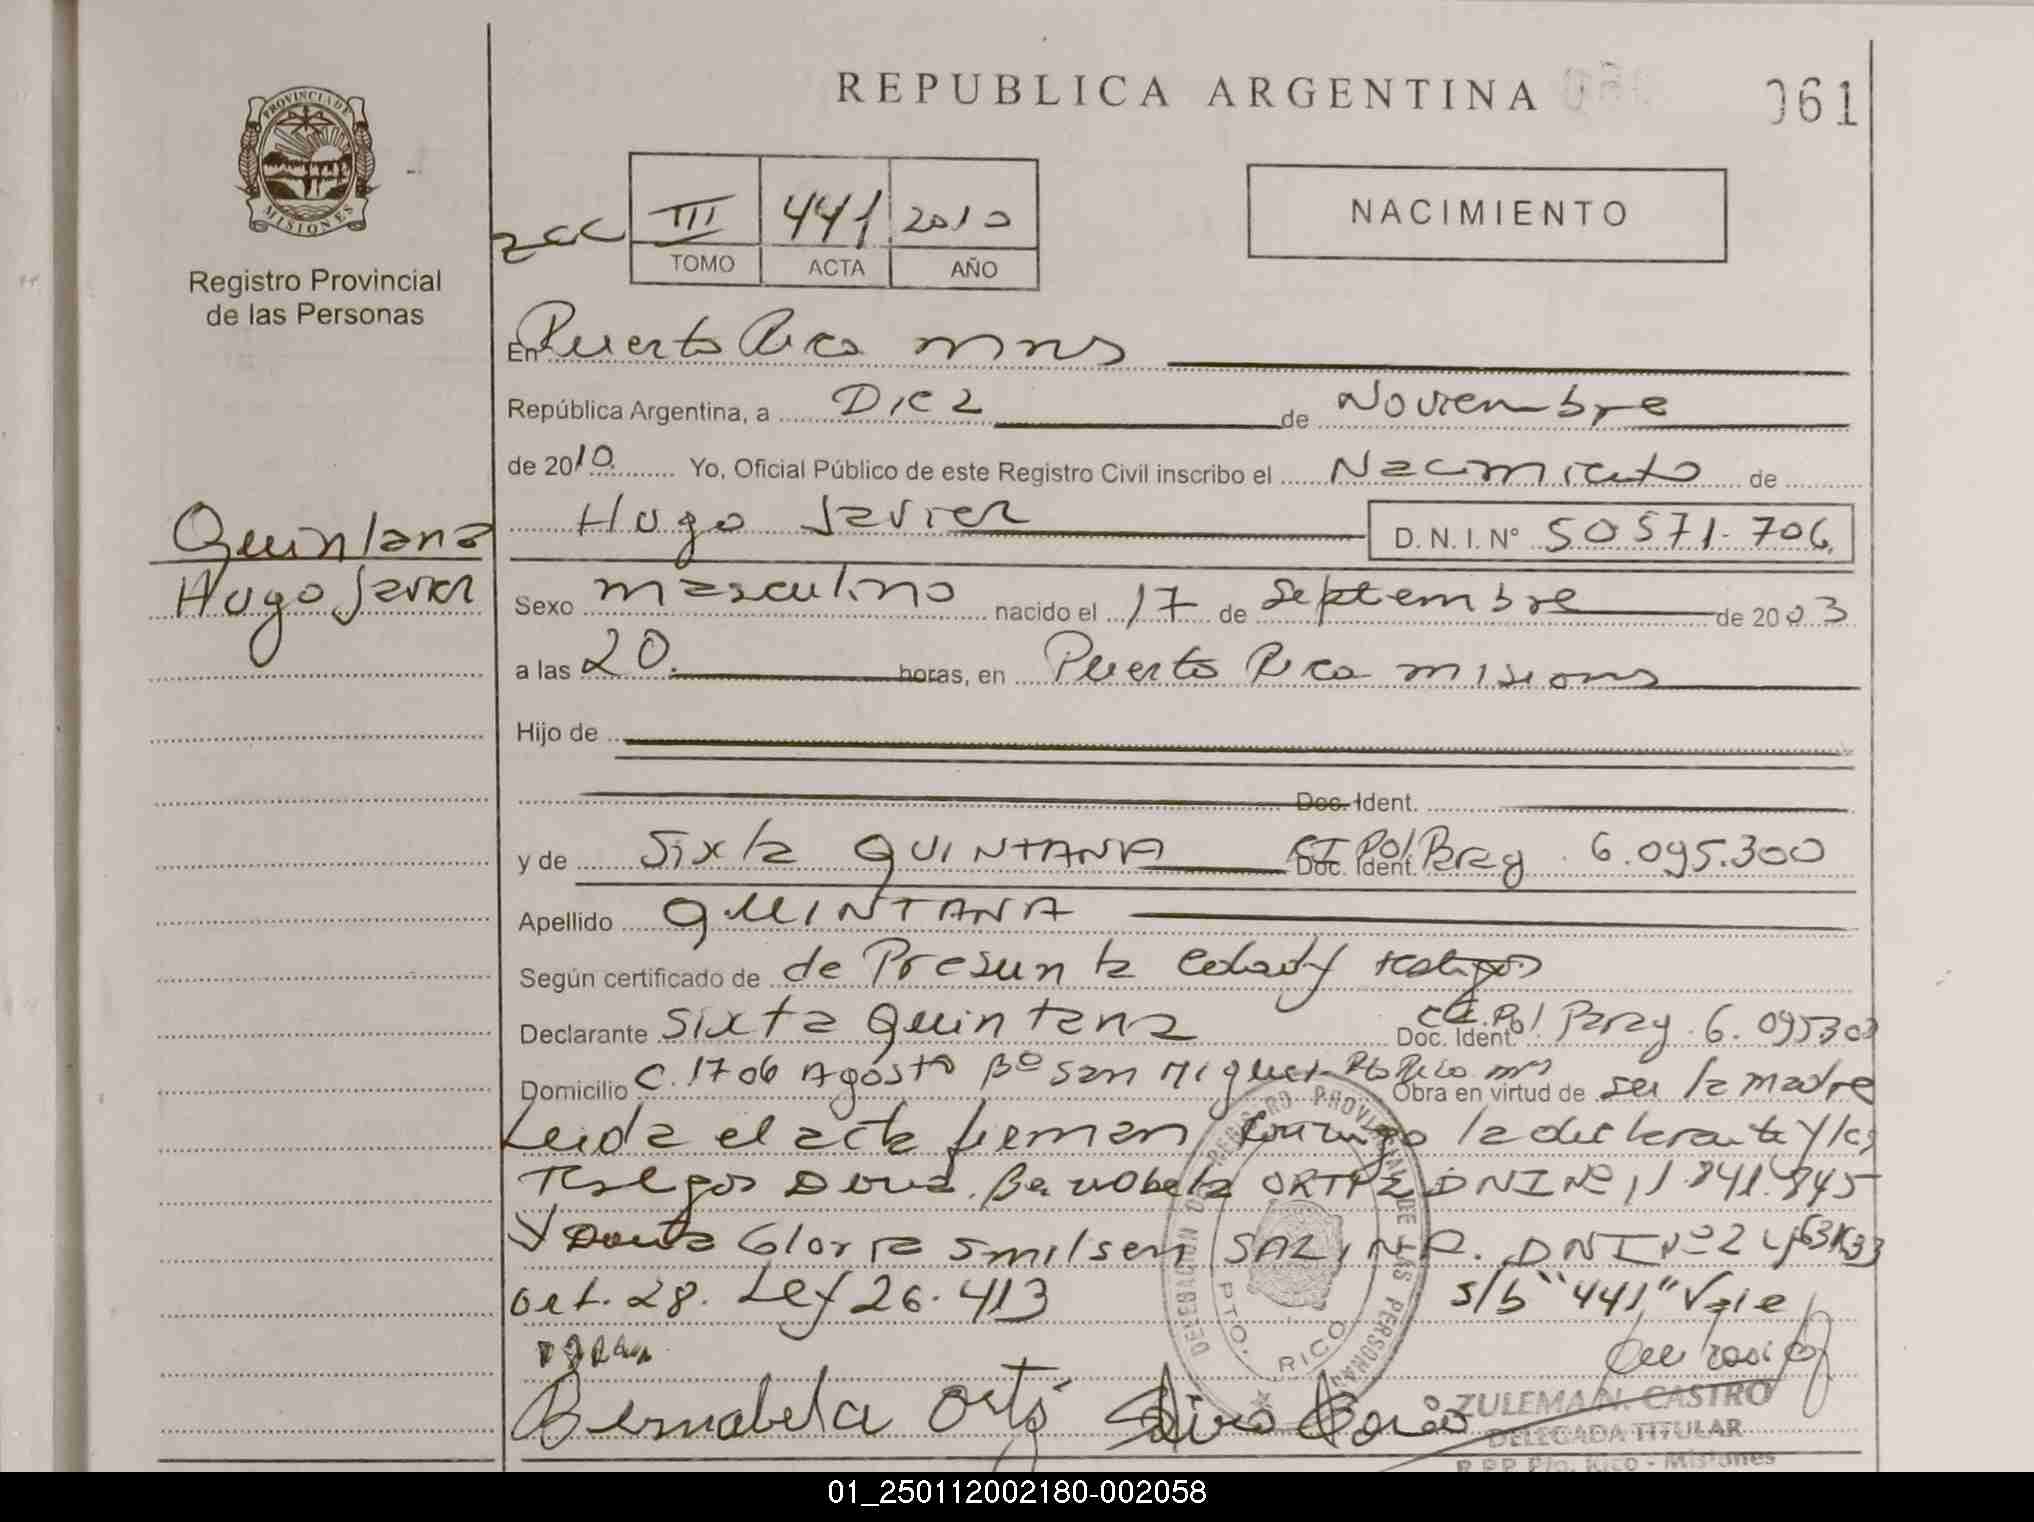 REPUBLICA ARGENTINA
061
PROVINCIA DE
MISIONES
Registro Provincial
de las Personas
III 441 2010
TOMO ACTA AÑO
NACIMIENTO
En Puerto Rico Mns
República Argentina, a Diez de Noviembre
de 2010 Yo, Oficial Público de este Registro Civil inscribo el Nacimiento de
Hugo Javier D.N.I. Nº 50571.706
Quintana
Hugo Javier
Sexo masculino nacido el 17 de septiembre de 2003
a las 20. horas, en Puerto Rico misiones
Hijo de
Doc. Ident.
y de Sixta QUINTANA Doc. Ident. CI Pol Parag. 6.095.300
Apellido QUINTANA
Según certificado de de Presunta edad y testigos
Declarante Sixta Quintana Doc. Ident. CI. Pol Parag. 6.095300
Domicilio C. 17 de Agosto Bº San Miguel Pto Rico Mns Obra en virtud de ser la madre
Leida el acta firman conmigo la declarante y los
Testigos Doña Bernabela ORTIZ DNI Nº 11.841.845
y Doña Gloria Smilsen DNI Nº
art. 28. Ley 26.413 s/b "441" Vale
Bernabela
DELEGACION DE REGISTRO PROVINCIAL DE LAS PERSONAS
PTO. RICO
ZULEMA N. CASTRO
DELEGADA TITULAR
R.P.P. Pto. Rico - Misiones
01_250112002180-002058